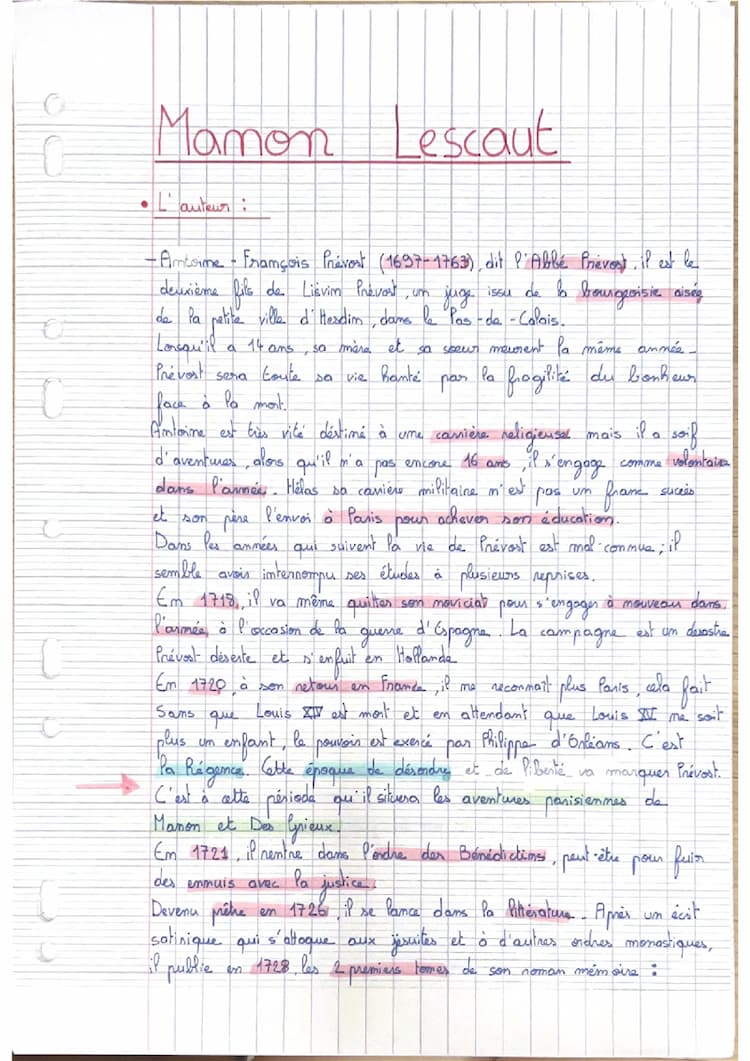 Manon Lescaut
• L'auteur :
- Antoine - François Prévost (1697-1763), dit l'Abbé Prévost, il est le
deuxième fils de Liévin Prévost, un juge issu de la bourgeoisie aisée
de la petite ville d'Hesdim, dans le Pas-de-Calais.
Lorsqu'il a 14 ans, sa mère et sa soeur meurent la même année.
Prévost sera toute sa vie hanté par la fragilité du bonheur
face à la mort.
Antoine est très vité déstimé à une carrière religieuse mais il a soif
d'aventures, alors qu'il n'a pas encore 16 ans, il s'engage comme volontaire
dans l'armée. Hélas sa carrière militaire n'est pas un franc succès
et son père l'envoi à Paris pour achever son éducation.
Dans les années qui suivent la vie de Prévost est mal connue ; il
semble avoir interrompu ses études à plusieurs reprises.
En 1718, il va même quitter son noviciat pour s'engager à nouveau dans
l'armée, à l'occasion de la guerre d'Espagne. La campagne est un desastre
Prévost déserte et s'enfuit en Hollande
En 1720, à son retour en France, il ne reconnaît plus Paris, cela fait
5ans que Louis XIV est mort et en attendant que Louis XV ne soit
plus un enfant, le pouvoir est exercé par Philippe d'Orléans. C'est
la Régence. Cette époque de désordre et de liberté va marquer Prévost.
C'est à cette période qu'il situera les aventures parisiennes de
Manon et Des Grieux.
En 1721, il rentre dans l'ordre des Bénédictins, peut-être pour fuir
des ennuis avec la justice.
Devenu prêtre en 1726, il se lance dans la littérature. Après un écit
satirique qui s'attaque aux jésuites et à d'autres ordres monastiques,
il publie en 1728, les 2 premiers tomes de son roman mémoire :